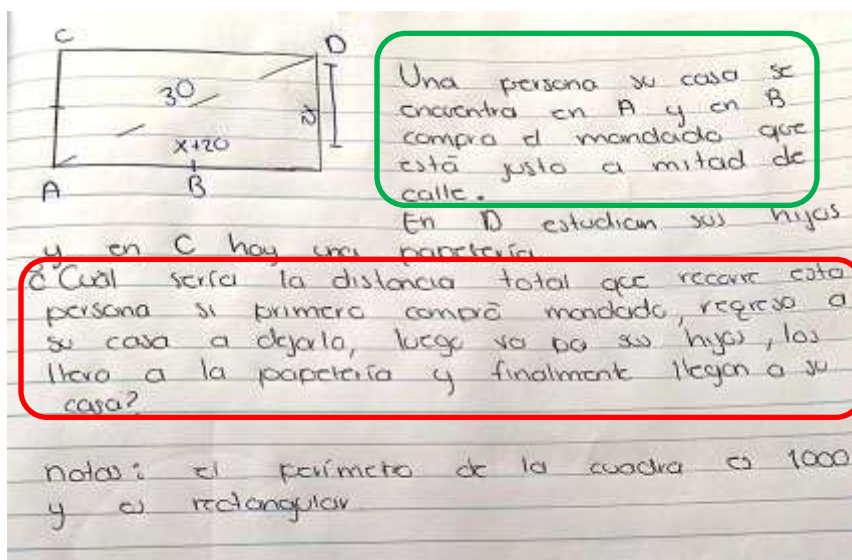 C
D
30
x+20
A
B
Una persona su casa se
encuentra en A y en B
compra el mandado que
está justo a mitad de
calle.
En D estudian sus hijos
y en C hay una papetería
¿Cuál sería la distancia total que recorre esta
persona si primero compró mandado, regreso a
su casa a dejarlo, luego va po sus hijos, los
llevo a la papetería y finalmente llegan a su
casa?
notas: el perímetro de la cuadra es 1000
y es rectangular